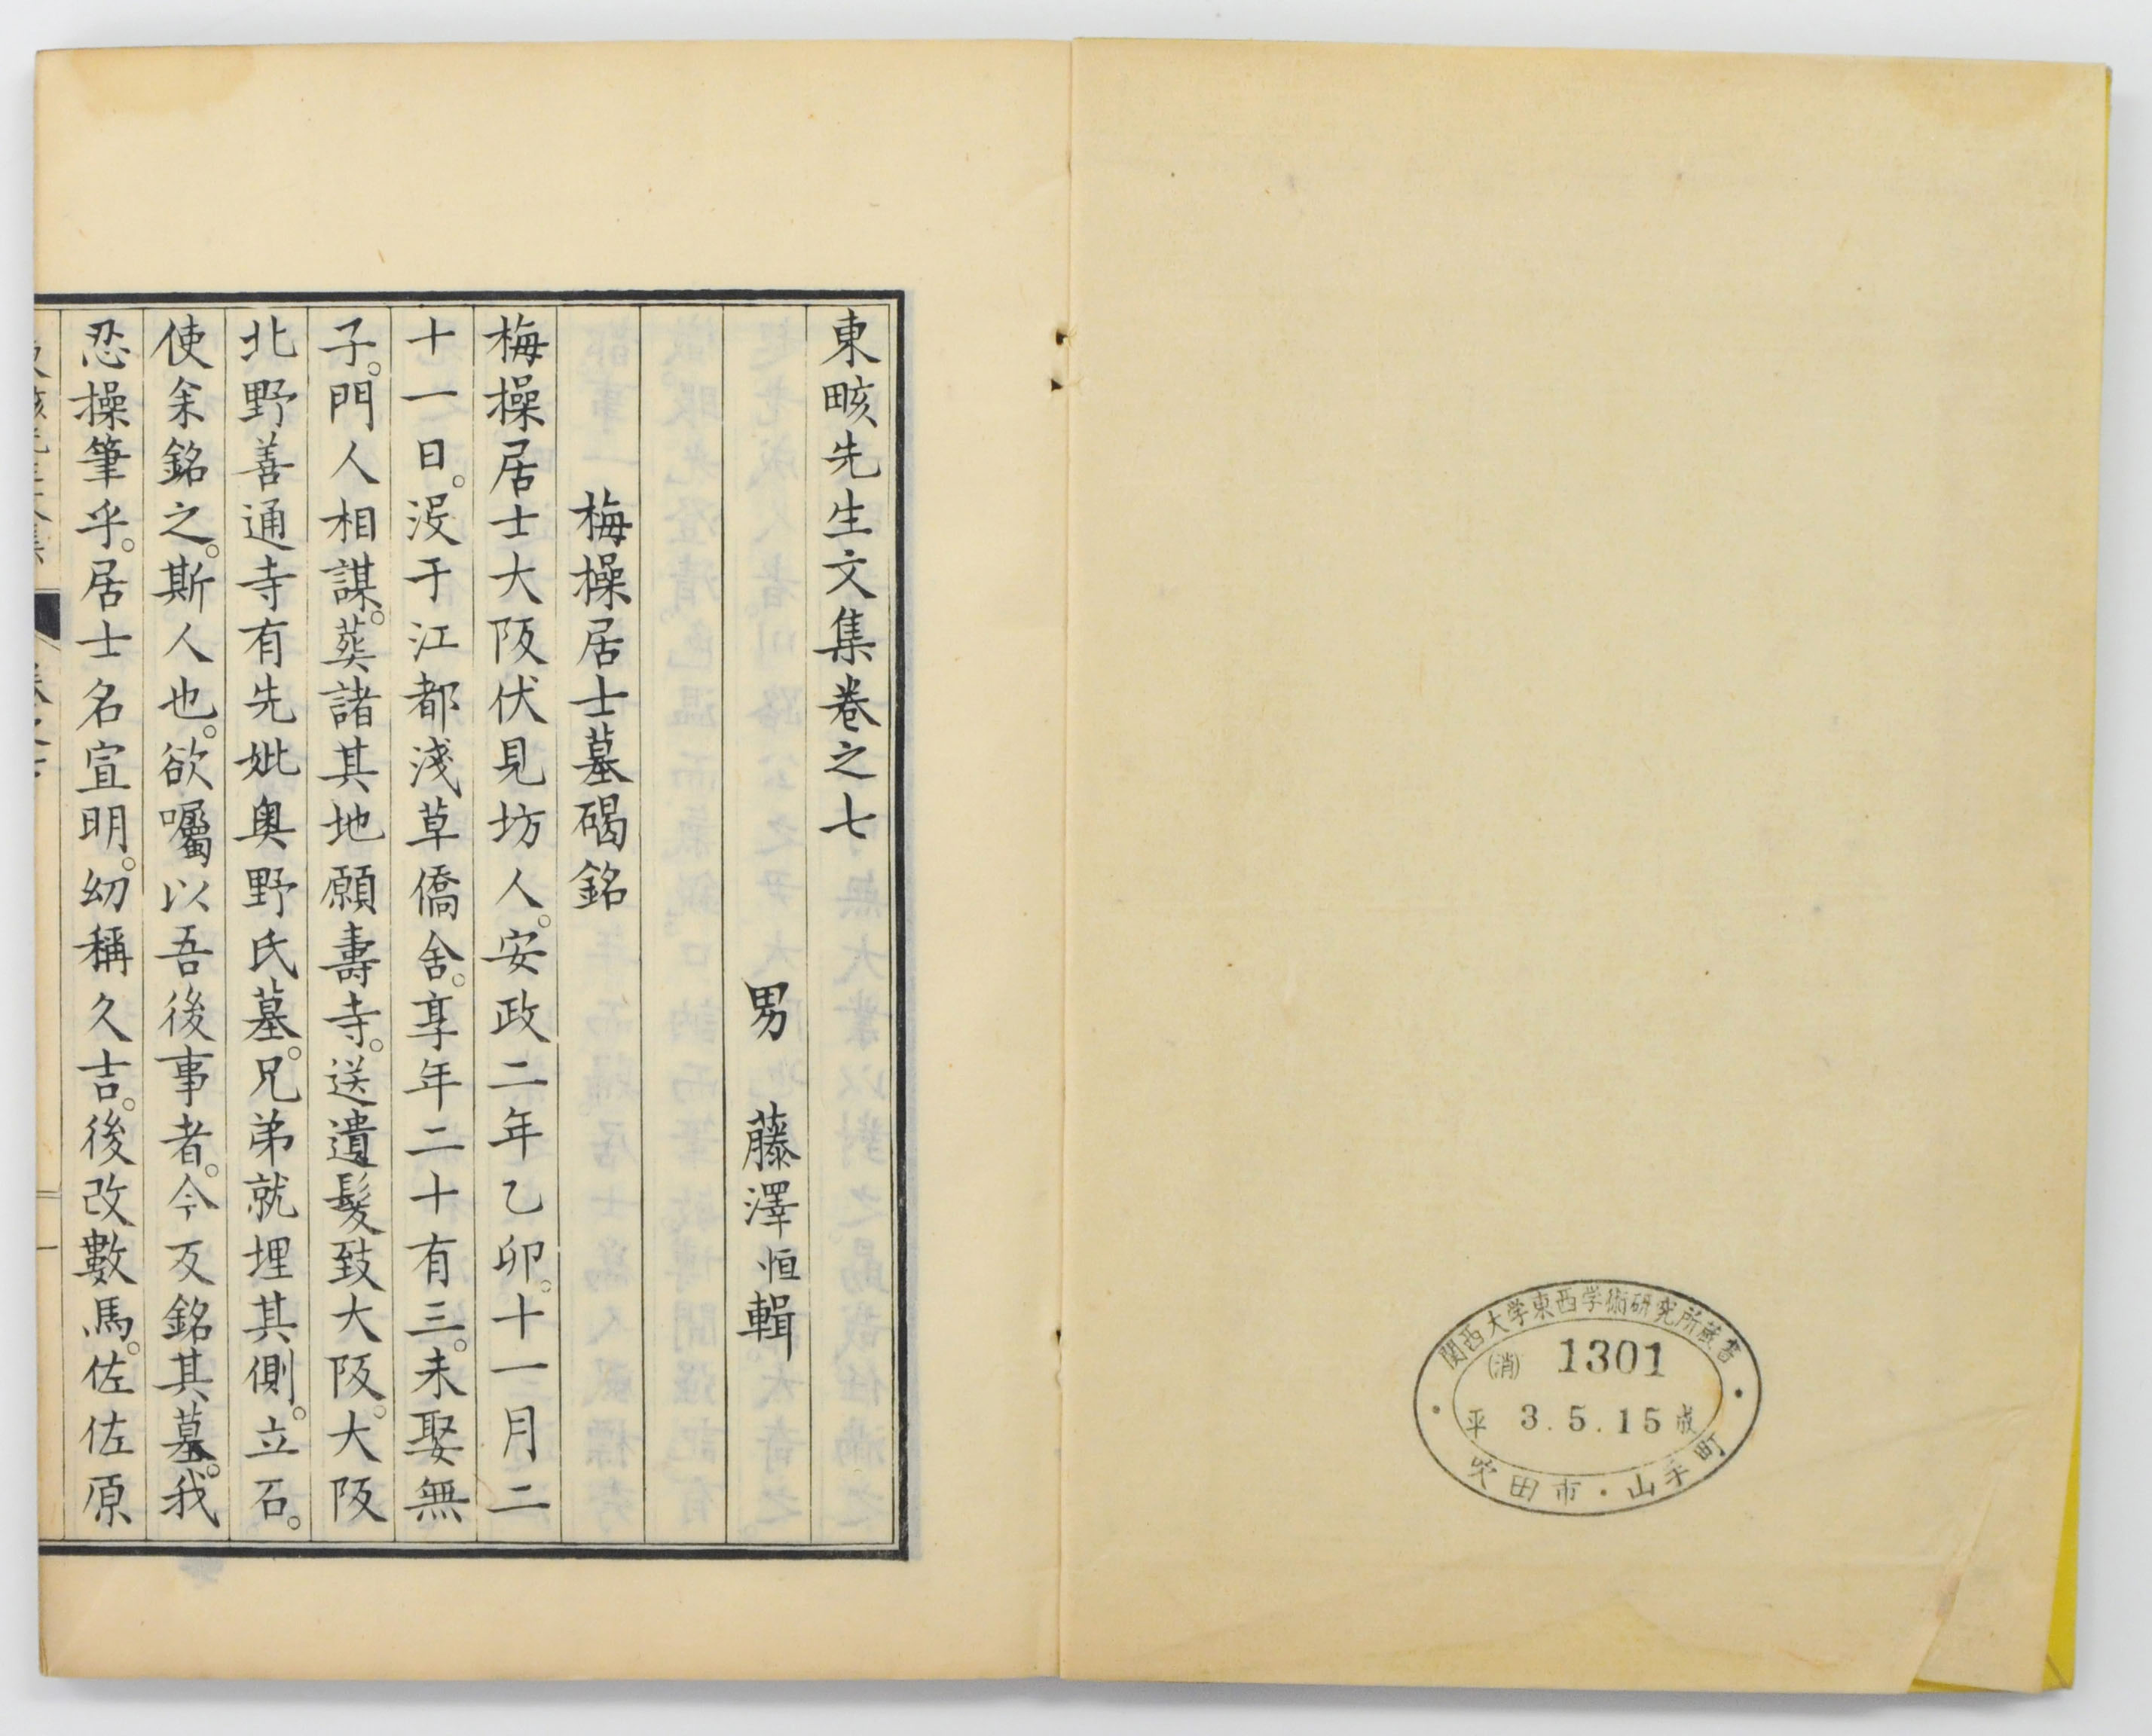 関西大学東西学術研究所蔵書
(消) 1301
平 3.5.15 成
吹田市・山手町
東畡先生文集卷之七
男 藤澤恒輯
梅操居士墓碣銘
梅操居士大阪伏見坊人。安政二年乙卯。十一月二
十一日。沒于江都淺草僑舍。享年二十有三。未娶無
子。門人相謀。葬諸其地願壽寺。送遺髮致大阪。大阪
北野善通寺有先妣奥野氏墓。兄弟就埋其側。立石。
使余銘之。斯人也。欲囑以吾後事者。今反銘其墓。我
忍操筆乎。居士名宜明。幼稱久吉。後改數馬。佐佐原